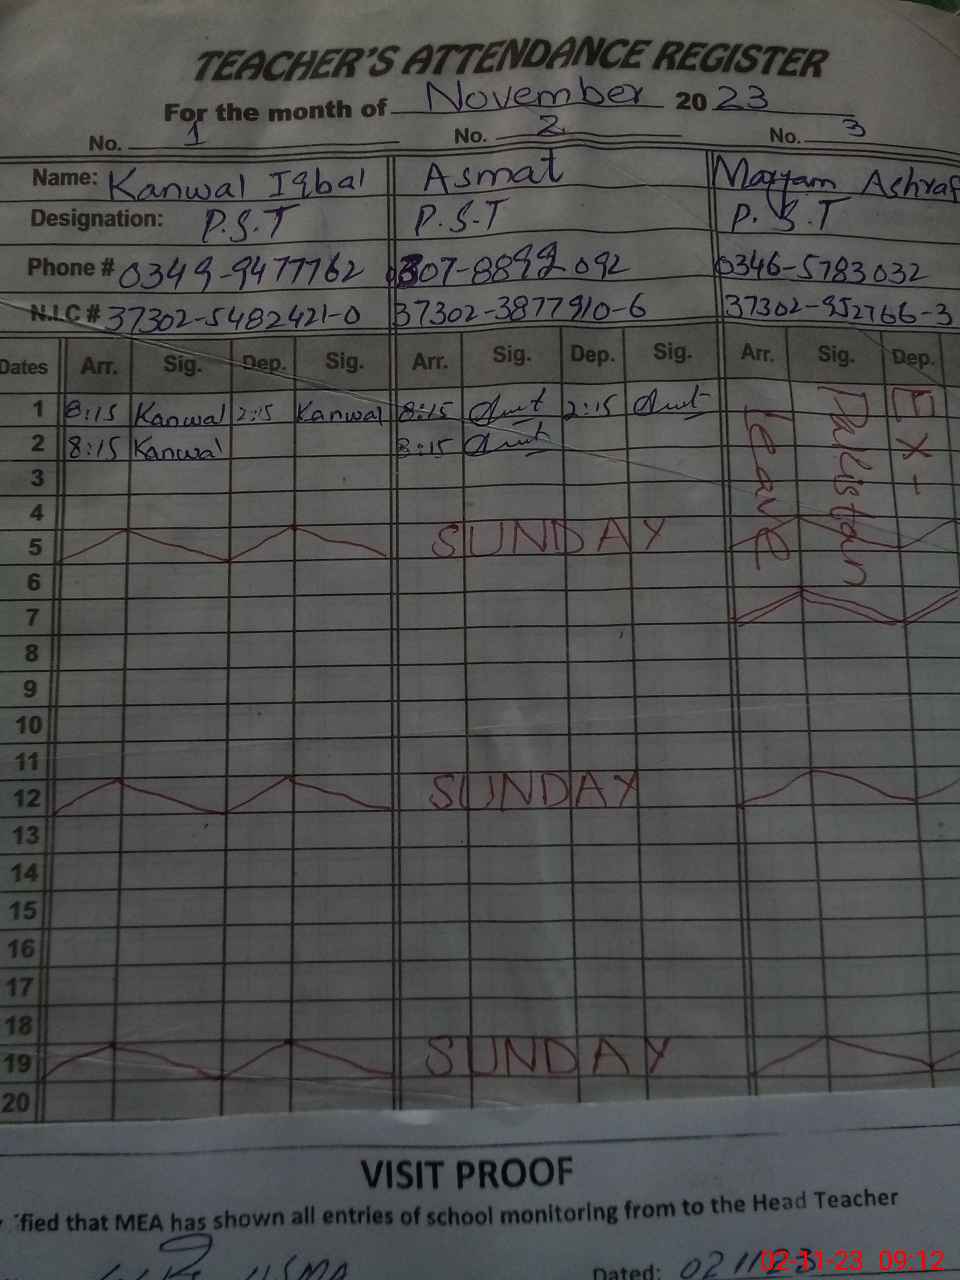 TEACHER'S ATTENDANCE REGISTER
For the month of November 2023
No. 1 No. 2 No. 3
Name: Kanwal Iqbal Asmat Maryam Ashraf
Designation: P.S.T P.S.T P.S.T
Phone # 0349-9477762 0307-8899092 0346-5783032
N.I.C # 37302-5482421-0 37302-3877910-6 37302-952766-3
Dates Arr. Sig. Dep. Sig. Arr. Sig. Dep. Sig. Arr. Sig. Dep.
1 8:15 Kanwal 2:15 Kanwal 8:15 2:15
2 8:15 Kanwal 8:15
Ex-
Pakistan
leave
3
4
5 SUNDAY
6
7
8
9
10
11
12 SUNDAY
13
14
15
16
17
18
19 SUNDAY
20
VISIT PROOF
fied that MEA has shown all entries of school monitoring from to the Head Teacher
Dated: 02
02-11-23 09:12